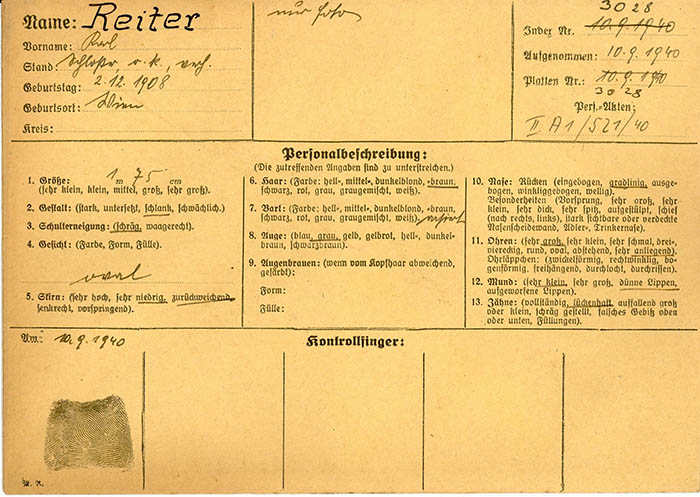 Name: Reiter
Vorname: Karl
Stand: Schlosser, r. k., verh.
Geburtstag: 2.12.1908
Geburtsort: Wien
Kreis:
nur Foto
3028
Index Nr. 10.9.1940
Aufgenommen: 10.9.1940
Platten Nr.: 10.9.1940
3028
Pers.-Akten:
II A1/521/40
Personalbeschreibung:
(Die zutreffenden Angaben sind zu unterstreichen.)
1. Größe: 1 m 75 cm
(sehr klein, klein, mittel, groß, sehr groß).
2. Gestalt: (stark, untersetzt, schlank, schwächlich.)
3. Schulterneigung: (schräg, waagerecht.)
4. Gesicht: (Farbe, Form, Fülle).
oval
5. Stirn: (sehr hoch, sehr niedrig, zurückweichend,
senkrecht, vorspringend).
6. Haar: (Farbe: hell-, mittel-, dunkelblond, -braun,
schwarz, rot, grau, graugemischt, weiß).
7. Bart: (Farbe: hell-, mittel-, dunkelblond, -braun,
schwarz, rot, grau, graugemischt, weiß). rasiert
8. Auge: (blau, grau, gelb, gelbrot, hell-, dunkel-
braun, schwarzbraun).
9. Augenbrauen: (wenn vom Kopfhaar abweichend,
gefärbt):
Form:
Fülle:
10. Nase: Rücken (eingebogen, gradlinig, ausge-
bogen, winkliggebogen, wellig).
Besonderheiten (Vorsprung, sehr groß, sehr
klein, sehr dick, sehr spitz, aufgestülpt, schief
(nach rechts, links), stark sichtbare oder verdeckte
Nasenscheidewand, Adler-, Trinkernase).
11. Ohren: (sehr groß, sehr klein, sehr schmal, drei-,
viereckig, rund, oval, abstehend, sehr anliegend).
Ohrläppchen: (zwickelförmig, rechtwinklig, bo-
genförmig, freihängend, durchlocht, durchrissen).
12. Mund: (sehr klein, sehr groß, dünne Lippen,
aufgeworfene Lippen).
13. Zähne: (vollständig, lückenhaft, auffallend groß
oder klein, schräg gestellt, falsches Gebiß oben
oder unten, Füllungen).
Am: 10.9.1940
Kontrollfinger: